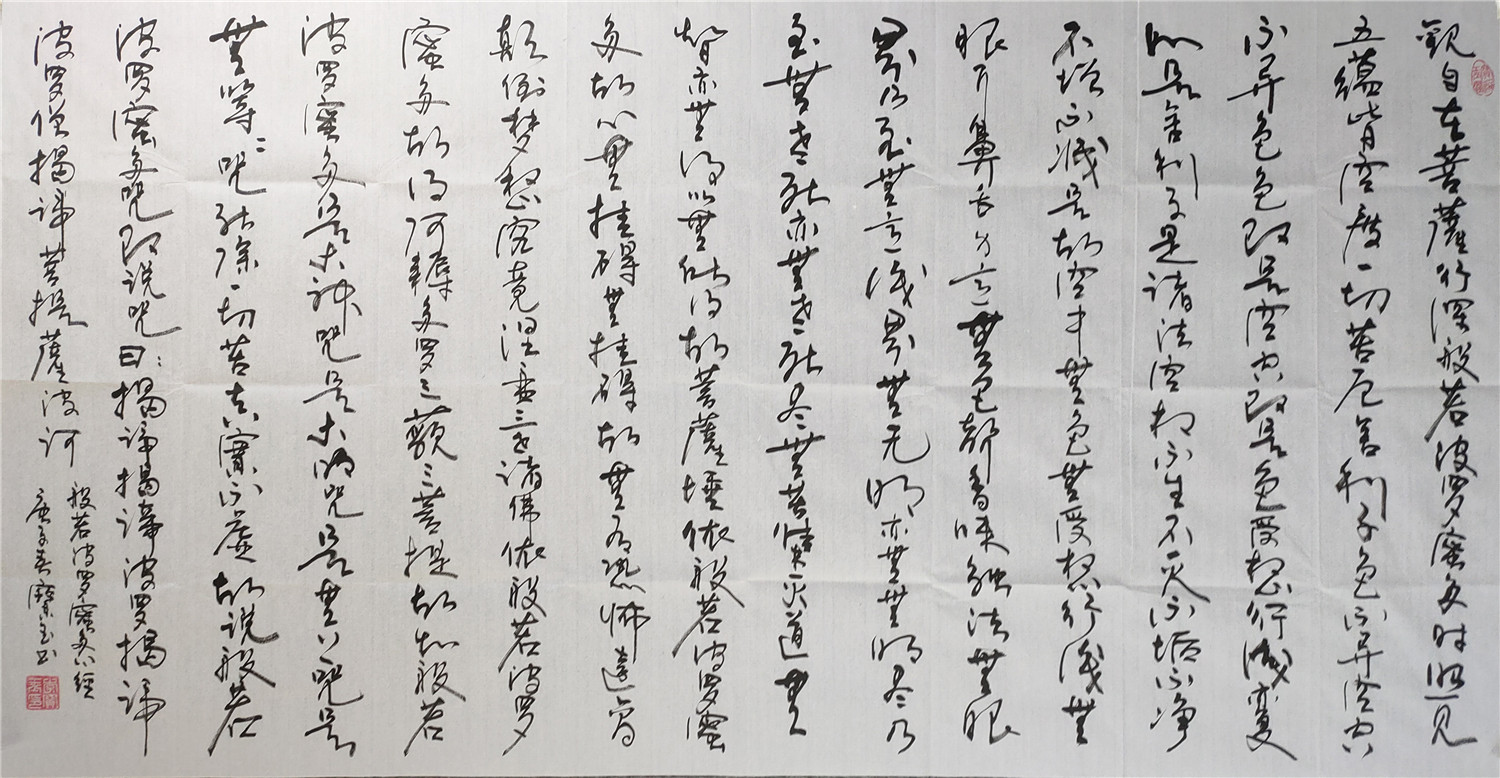 觀自在菩薩行深般若波罗蜜多时照见
五蕴皆空度一切苦厄舍利子色不异空空
不异色色即是空空即是色受想行识亦复
如是舍利子是诸法空相不生不灭不垢不净
不增不减是故空中無色無受想行识無
眼耳鼻舌身意無色声香味触法無眼
界乃至無意识界無无明亦無無明尽乃
至無老死亦無老死尽無苦集灭道無
智亦無得以無所得故菩薩埵依般若波罗蜜
多故心無挂碍無挂碍故無有恐怖远离
颠倒梦想究竟涅盘三世诸佛依般若波罗
蜜多故得阿耨多罗三藐三菩提故知般若
波罗蜜多是大神咒是大明咒是無上咒是
無等等咒能除一切苦真实不虚故说般若
波罗蜜多咒即说咒曰：揭谛揭谛波罗揭谛
波罗僧揭谛菩提薩波诃
般若波罗蜜多心经